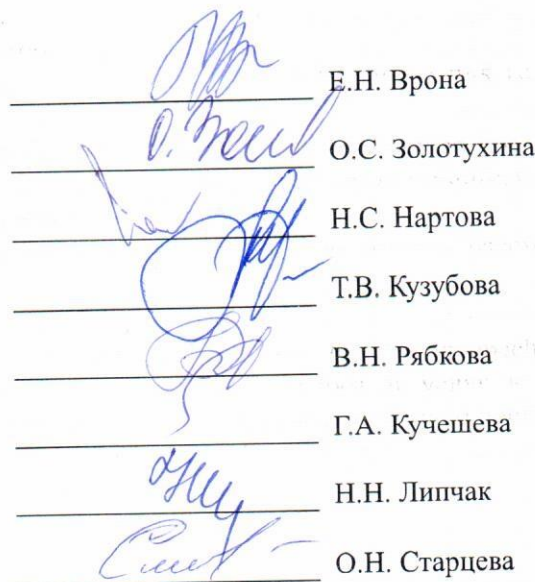 Е.Н. Врона
О.С. Золотухина
Н.С. Нартова
Т.В. Кузубова
В.Н. Рябкова
Г.А. Кучешева
Н.Н. Липчак
О.Н. Старцева